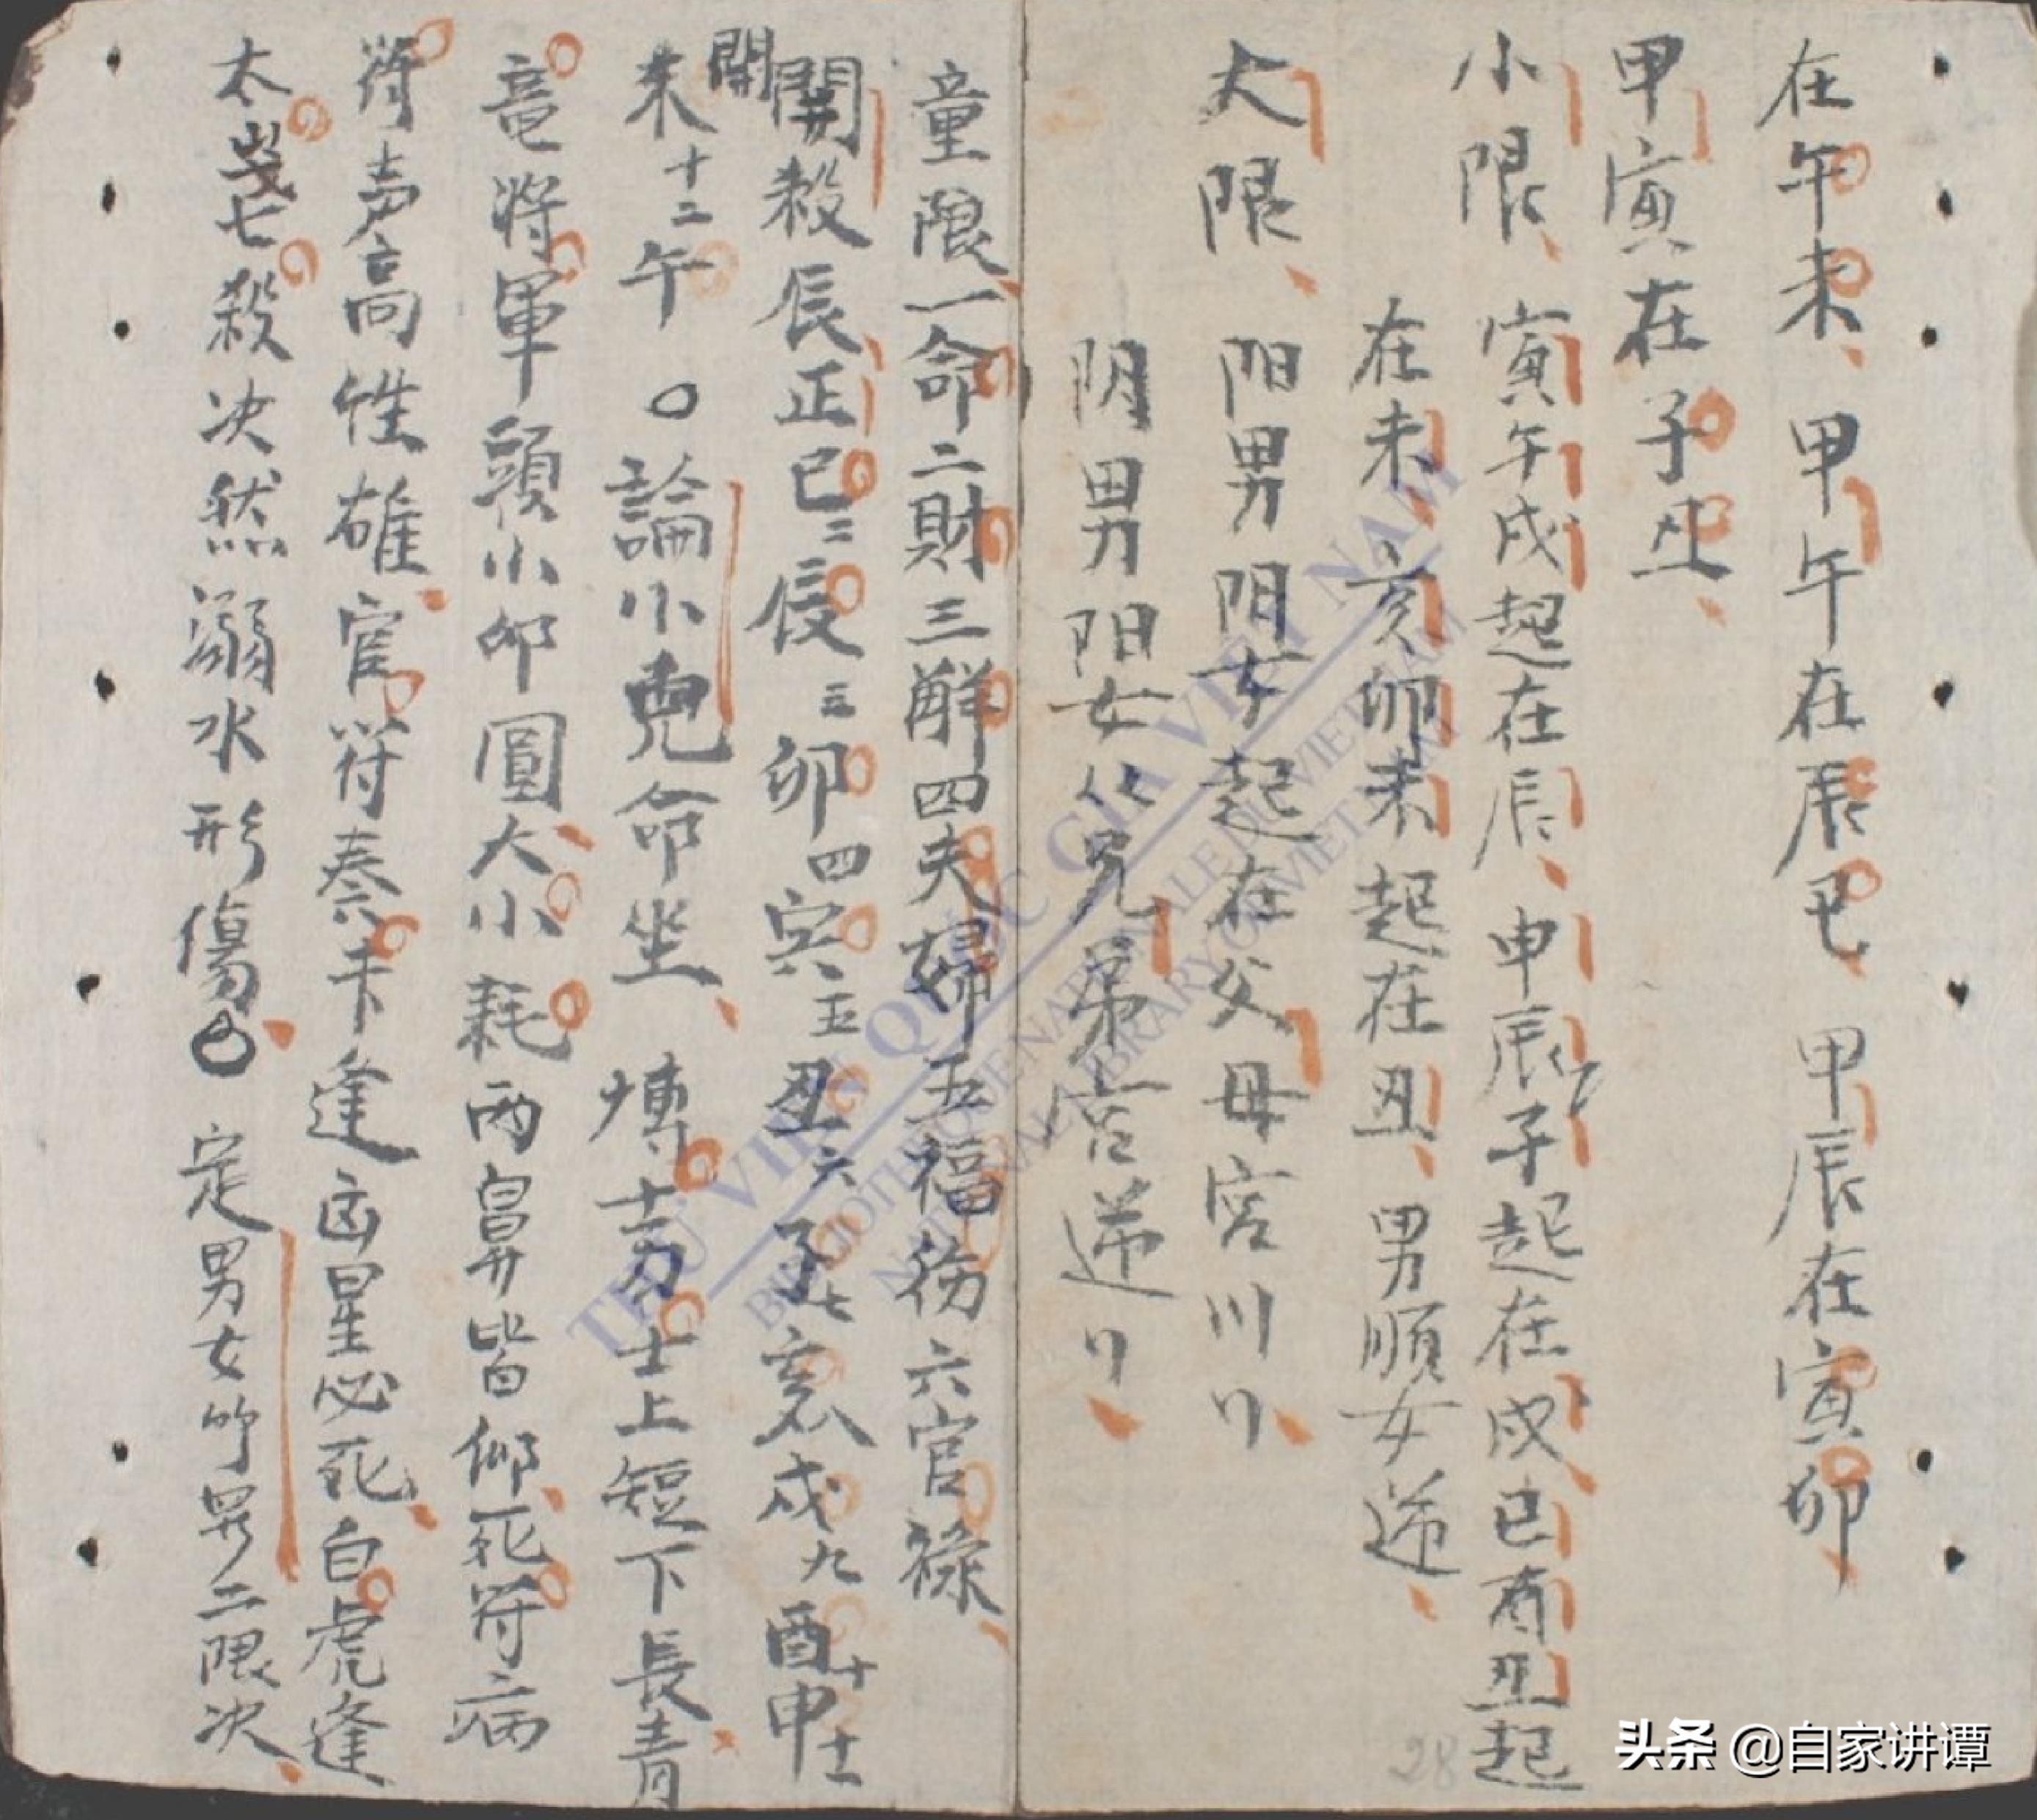 在午未、甲午在辰巳、甲辰在寅卯、
甲寅在子丑、
小限、寅午戌起在辰、申辰子起在戌、巳酉丑起
在未、亥卯未起在丑、男順女逆、
大限、阳男阴女起在父母宮川リ、
阴男阳女从兄弟宮逆リ、
童限、一命二財三解四夫婦五福德六官祿、
開殺辰正巳二辰三卯四寅五丑六子七亥八戌九酉十申十一
開
未十二午〇論小児命坐、博士力士上短下長、青
竜將軍頭小卵圓、大小耗両鼻皆仰、死符病
符声高性雄、官符奏書逢凶星必死、白虎逢
太歲七殺決然溺水形傷、〇定男女竹男二限次、
THƯ VIỆN QUỐC GIA VIỆT NAM
BIBLIOTHÈQUE NATIONALE DU VIETNAM
NATIONAL LIBRARY OF VIETNAM
28
头条 @自家讲谭